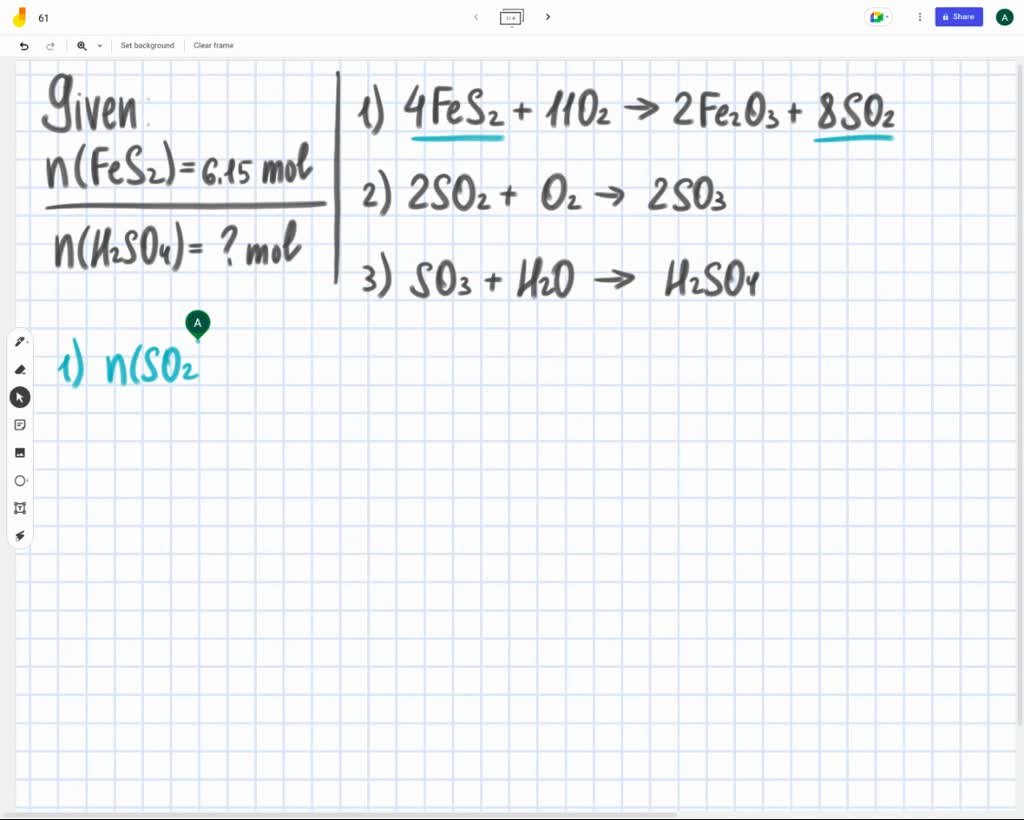 61
Share
A
Set background
Clear frame
Given:
n(FeS2)=6.15 mol
n(H2SO4)= ? mol
1) 4FeS2 + 11O2 → 2Fe2O3 + 8SO2
2) 2SO2 + O2 → 2SO3
3) SO3 + H2O → H2SO4
A
1) n(SO2